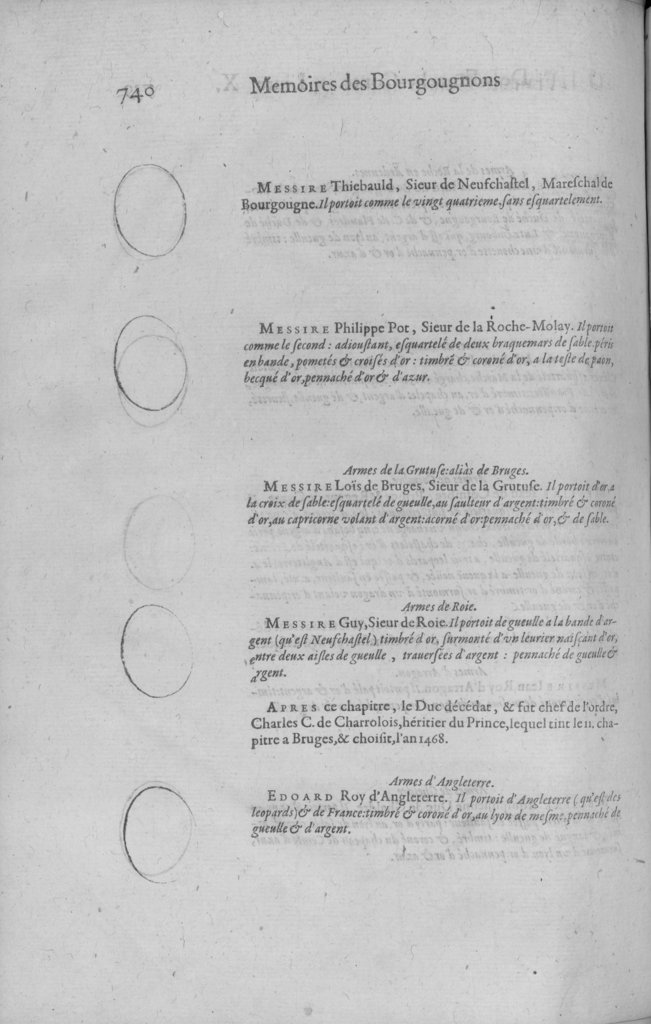 740
Memoires des Bourgougnons
MESSIRE Thiebauld, Sieur de Neufchaſtel, Mareſchal de
Bourgougne. Il portoit comme le vingt quatrieme, ſans eſquartelement.
MESSIRE Philippe Pot, Sieur de la Roche-Molay. Il portoit
comme le ſecond: adiouſtant, eſquartelé de deux braquemars de ſable, péris
en bande, pometés & croiſés d'or: timbré & coroné d'or, a la teſte de paon,
becqué d'or, pennaché d'or & d'azur.
Armes de la Grutuſe: aliàs de Bruges.
MESSIRE Loïs de Bruges, Sieur de la Grutuſe. Il portoit d'or a
la croix de ſable: eſquartelé de gueulle, au ſaulteur d'argent: timbré & coroné
d'or, au capricorne volant d'argent: acorné d'or: pennaché d'or, & de ſable.
Armes de Roie.
MESSIRE Guy, Sieur de Roie. Il portoit de gueulle a la bande d'ar-
gent (qu'eſt Neufchaſtel) timbré d'or, ſurmonté d'vn leurier naiſçant d'or,
entre deux aiſles de gueulle, trauerſées d'argent: pennaché de gueulle &
argent.
APRES ce chapitre, le Duc décédat, & fut chef de l'ordre,
Charles C. de Charrolois, héritier du Prince, lequel tint le 11. cha-
pitre a Bruges, & choiſit, l'an 1468.
Armes d'Angleterre.
EDOARD Roy d'Angleterre. Il portoit d'Angleterre (qu'eſt des
leopards) & de France: timbré & coroné d'or, au lyon de meſme, pennaché de
gueulle & d'argent.